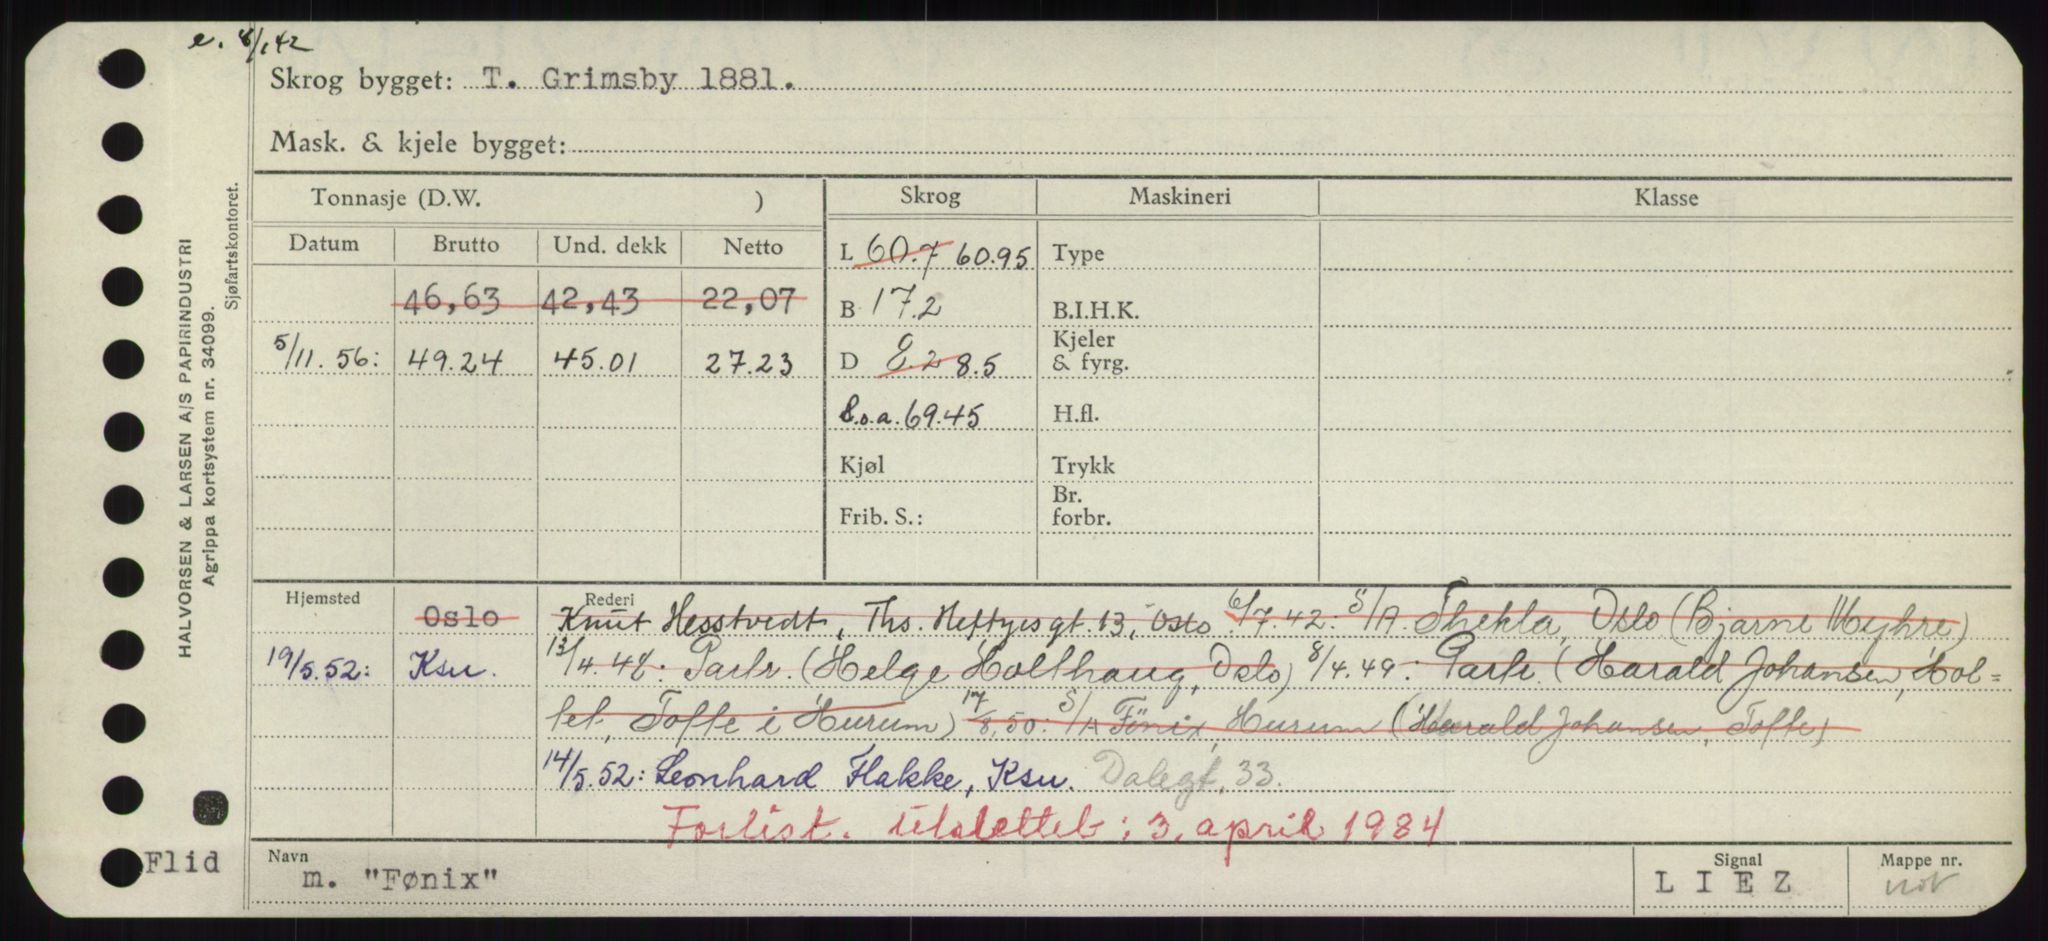 e. 8/1 42
Skrog bygget: T. Grimsby 1881.
Mask. & kjele bygget:
Tonnasje (D.W. ) Skrog Maskineri Klasse
Datum Brutto Und. dekk Netto
L 60.7 60.95 Type
46,63 42,43 22,07 B 17.2 B.I.H.K.
5/11.56: 49.24 45.01 27.23 D 8.2 8.5 Kjeler & fyrg.
l.o.a. 69.45 H.fl.
Kjøl Trykk
Frib. S.: Br. forbr.
Hjemsted Oslo Rederi Knut Hesstvedt, Ths. Heftyesgt. 13, Oslo 6/7.42: S/A Thekla, Oslo (Bjarne Myhre)
19/5.52: Ksu. 13/4.48: Partr. (Helge Holthaug, Oslo) 8/4.49: Partr. (Harald Johansen, Hol=
tet, Tofte i Hurum) 17/8.50: S/A Fönix, Hurum (Harald Johansen, Tofte)
14/5.52: Leonhard Flakke, Ksu. Dalegt. 33.
Forlist. Utslettet: 3. april 1984
Flid Navn m. "Fønix" Signal L I E Z Mappe nr. not
HALVORSEN & LARSEN A/S PAPIRINDUSTRI
Agrippa kortsystem nr. 34099.
Sjøfartskontoret.